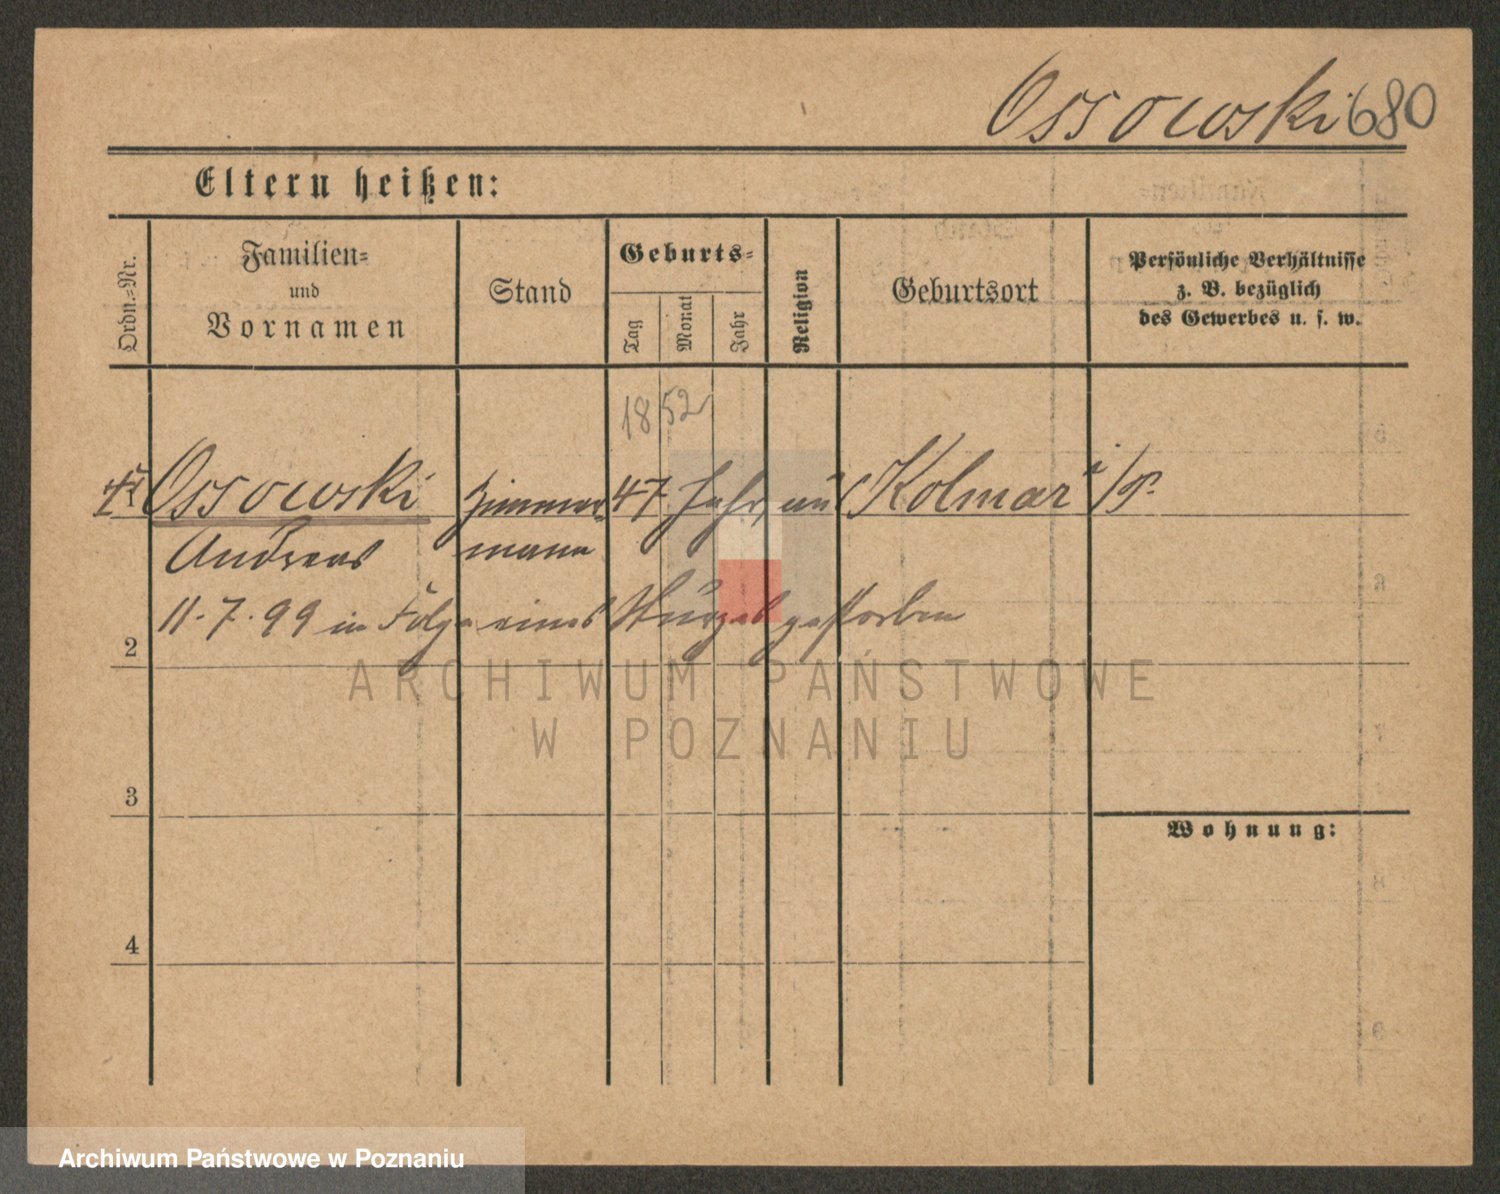 Ossowski 680
Eltern heißen:
Ordn.=Nr.
Familien=
und
Vornamen
Stand
Geburts=
Tag
Monat
Jahr
Religion
Geburtsort
Persönliche Verhältnisse
z. B. bezüglich
des Gewerbes u. s. w.
1852
Ossowski Zimmer 47 Jahr, Kolmar i/P.
Andreas mann
11.7.99 in Folge eines Sturzes gestorben
2
3
4
Wohnung:
ARCHIWUM PAŃSTWOWE
W POZNANIU
Archiwum Państwowe w Poznaniu